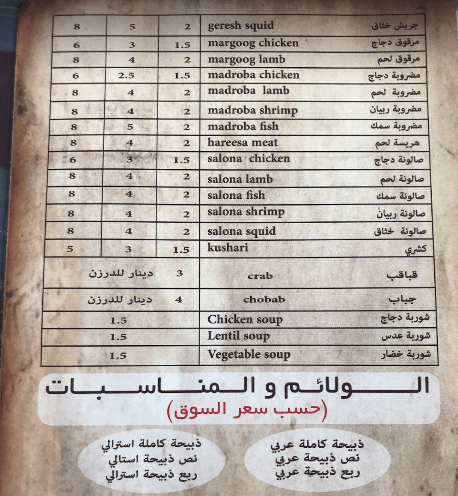 8 5 2 geresh squid جريش خثاق
6 3 1.5 margoog chicken مرقوق دجاج
8 4 2 margoog lamb مرقوق لحم
6 2.5 1.5 madroba chicken مضروبة دجاج
8 4 2 madroba lamb مضروبة لحم
8 4 2 madroba shrimp مضروبة ربيان
8 5 2 madroba fish مضروبة سمك
8 4 2 hareesa meat هريسة لحم
6 3 1.5 salona chicken صالونة دجاج
8 4 2 salona lamb صالونة لحم
8 4 2 salona fish صالونة سمك
8 4 2 salona shrimp صالونة ربيان
8 4 2 salona squid صالونة خثاق
5 3 1.5 kushari كشري
3 دينار للدرزن crab قباقب
4 دينار للدرزن chobab جباب
1.5 Chicken soup شوربة دجاج
1.5 Lentil soup شوربة عدس
1.5 Vegetable soup شوربة خضار
الـولائـم و الـمنـاسـبـات
(حسب سعر السوق)
ذبيحة كاملة عربي
نص ذبيحة عربي
ربع ذبيحة عربي
ذبيحة كاملة استرالي
نص ذبيحة استالي
ربع ذبيحة استرالي